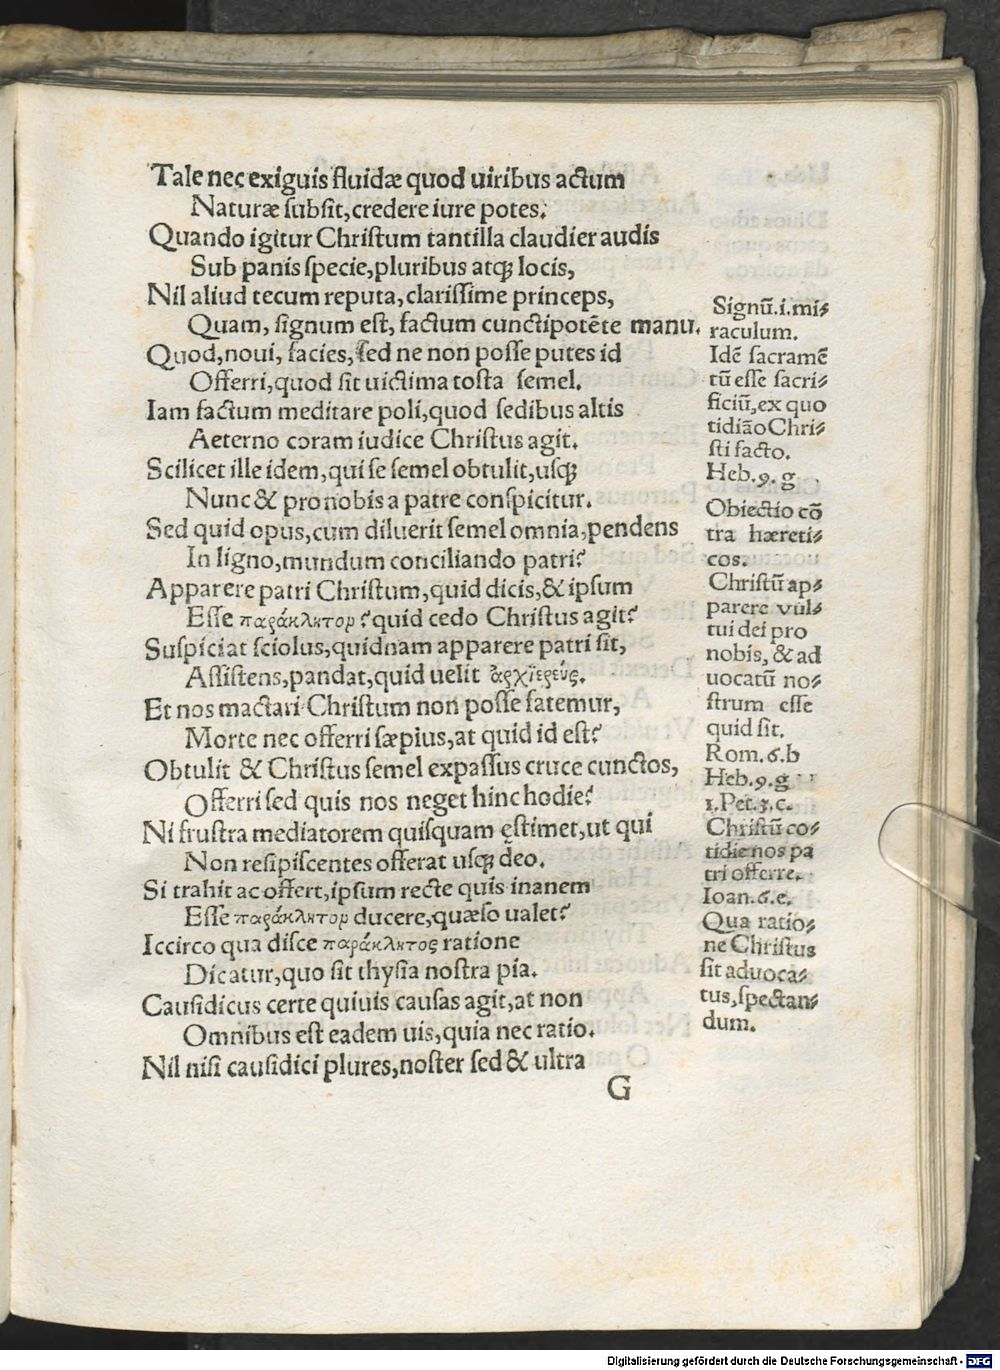 Tale nec exiguis fluidæ quod uiribus actum
Naturæ ſubſit, credere iure potes.
Quando igitur Chriſtum tantilla claudier audis
Sub panis ſpecie, pluribus atqꝫ locis,
Nil aliud tecum reputa, clariſſime princeps,
Quam, ſignum eſt, factum cunctipotēte manu.
Quod, noui, facies, ſed ne non poſſe putes id
Offerri, quod ſit uictima toſta ſemel.
Iam factum meditare poli, quod ſedibus altis
Aeterno coram iudice Chriſtus agit.
Scilicet ille idem, qui ſe ſemel obtulit, uſqꝫ
Nunc & pro nobis a patre conſpicitur.
Sed quid opus, cum diluerit ſemel omnia, pendens
In ligno, mundum conciliando patri?
Apparere patri Chriſtum, quid dicis, & ipſum
Eſſe παράκλητορ? quid cedo Chriſtus agit?
Suſpiciat ſciolus, quidnam apparere patri ſit,
Aſſiſtens, pandat, quid uelit ἀρχϊερεύς.
Et nos mactari Chriſtum non poſſe fatemur,
Morte nec offerri ſæpius, at quid id eſt?
Obtulit & Chriſtus ſemel expaſſus cruce cunctos,
Offerri ſed quis nos neget hinc hodie?
Ni fruſtra mediatorem quiſquam ęſtimet, ut qui
Non reſipiſcentes offerat uſqꝫ deo.
Si trahit ac offert, ipſum recte quis inanem
Eſſe παράκλητορ ducere, quæſo ualet?
Iccirco qua diſce παράκλητος ratione
Dicatur, quo ſit thyſia noſtra pia.
Cauſidicus certe quiuis cauſas agit, at non
Omnibus eſt eadem uis, quia nec ratio.
Nil niſi cauſidici plures, noſter ſed & ultra
G
Signū.i.mi⸗
raculum.
Idē ſacramē
tū eſſe ſacri⸗
ficiū, ex quo
tidiāo Chri⸗
ſti facto.
Heb.9.g
Obiectio cō
tra hæreti⸗
cos.
Chriſtū ap⸗
parere vul⸗
tui dei pro
nobis, & ad
uocatū no⸗
ſtrum eſſe
quid ſit.
Rom.6.b
Heb.9.g
1.Pet.3.c.
Chriſtū co⸗
tidie nos pa
tri offerre.
Ioan.6.e.
Qua ratio⸗
ne Chriſtus
ſit aduoca⸗
tus, ſpectan⸗
dum.
Digitalisierung gefördert durch die Deutsche Forschungsgemeinschaft - DFG